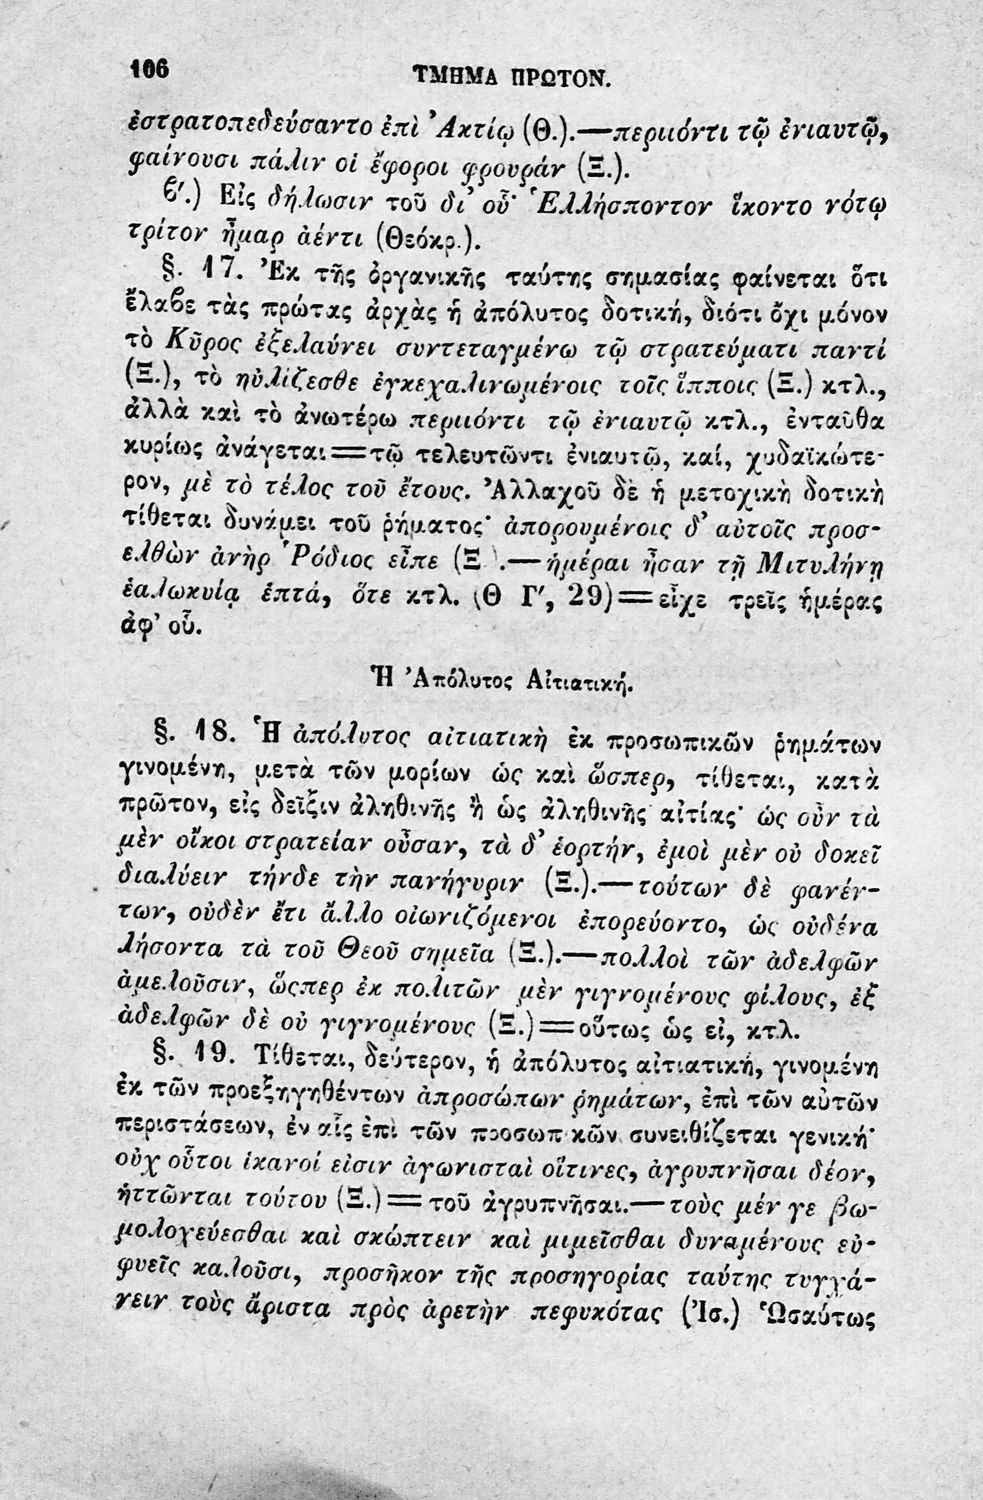 106
ΤΜΗΜΑ ΠΡΩΤΟΝ.
ἐστρατοπεδεύσαντο ἐπὶ Ἀκτίῳ (Θ.).—περιιόντι τῷ ἐνιαυτῷ,
φαίνουσι πάλιν οἱ ἔφοροι φρουράν (Ξ.).
ϐ΄.) Εἰς δήλωσιν τοῦ δι’ οὗ· Ἑλλήσποντον ἵκοντο νότῳ
τρίτον ἦμαρ ἀέντι (Θεόκρ.).
§. 17. Ἐκ τῆς ὀργανικῆς ταύτης σημασίας φαίνεται ὅτι
ἔλαϐε τὰς πρώτας ἀρχὰς ἡ ἀπόλυτος δοτική, διότι ὄχι μόνον
τὸ Κῦρος ἐξελαύνει συντεταγμένω τῷ στρατεύματι παντί
(Ξ.), τὸ ηὐλίζεσθε ἐγκεχαλινωμένοις τοῖς ἵπποις (Ξ.) κτλ.,
ἀλλὰ καὶ τὸ ἀνωτέρω περιιόντι τῷ ἐνιαυτῷ κτλ., ἐνταῦθα
κυρίως ἀνάγεται=τῷ τελευτῶντι ἐνιαυτῷ, καί, χυδαϊκώτε-
ρον, μὲ τὸ τέλος τοῦ ἔτους. Ἀλλαχοῦ δὲ ἡ μετοχικὴ δοτικὴ
τίθεται δυνάμει τοῦ ῥήματος· ἀπορουμένοις δ’ αὐτοῖς προσ-
ελθὼν ἀνὴρ Ῥόδιος εἶπε (Ξ.).—ἡμέραι ἦσαν τῇ Μιτυλήνῃ
ἑαλωκυίᾳ ἑπτά, ὅτε κτλ. (Θ Γ΄, 29)=εἶχε τρεῖς ἡμέρας
ἀφ’ οὗ.
Ἡ Ἀπόλυτος Αἰτιατική.
§. 18. Ἡ ἀπόλυτος αἰτιατικὴ ἐκ προσωπικῶν ῥημάτων
γινομένη, μετὰ τῶν μορίων ὡς καὶ ὥσπερ, τίθεται, κατὰ
πρῶτον, εἰς δεῖξιν ἀληθινῆς ἢ ὡς ἀληθινῆς αἰτίας· ὡς οὖν τὰ
μὲν οἴκοι στρατείαν οὖσαν, τὰ δ’ ἑορτήν, ἐμοὶ μὲν οὐ δοκεῖ
διαλύειν τήνδε τὴν πανήγυριν (Ξ.).—τούτων δὲ φανέν-
των, οὐδὲν ἔτι ἄλλο οἰωνιζόμενοι ἐπορεύοντο, ὡς οὐδένα
λήσοντα τὰ τοῦ Θεοῦ σημεῖα (Ξ.).—πολλοὶ τῶν ἀδελφῶν
ἀμελοῦσιν, ὥςπερ ἐκ πολιτῶν μὲν γιγνομένους φίλους, ἐξ
ἀδελφῶν δὲ οὐ γιγνομένους (Ξ.)=οὕτως ὡς εἰ, κτλ.
§. 19. Τίθεται, δεύτερον, ἡ ἀπόλυτος αἰτιατική, γινομένη
ἐκ τῶν προεξηγηθέντων ἀπροσώπων ῥημάτων, ἐπὶ τῶν αὐτῶν
περιστάσεων, ἐν αἷς ἐπὶ τῶν προσωπικῶν συνειθίζεται γενική·
οὐχ οὗτοι ἱκανοί εἰσιν ἀγωνισταὶ οἵτινες, ἀγρυπνῆσαι δέον,
ἡττῶνται τούτου (Ξ.)=τοῦ ἀγρυπνῆσαι.—τοὺς μέν γε βω-
μολοχεύεσθαι καὶ σκώπτειν καὶ μιμεῖσθαι δυναμένους εὐ-
φυεῖς καλοῦσι, προσῆκον τῆς προσηγορίας ταύτης τυγχά-
νειν τοὺς ἄριστα πρὸς ἀρετὴν πεφυκότας (Ἰσ.) Ὡσαύτως